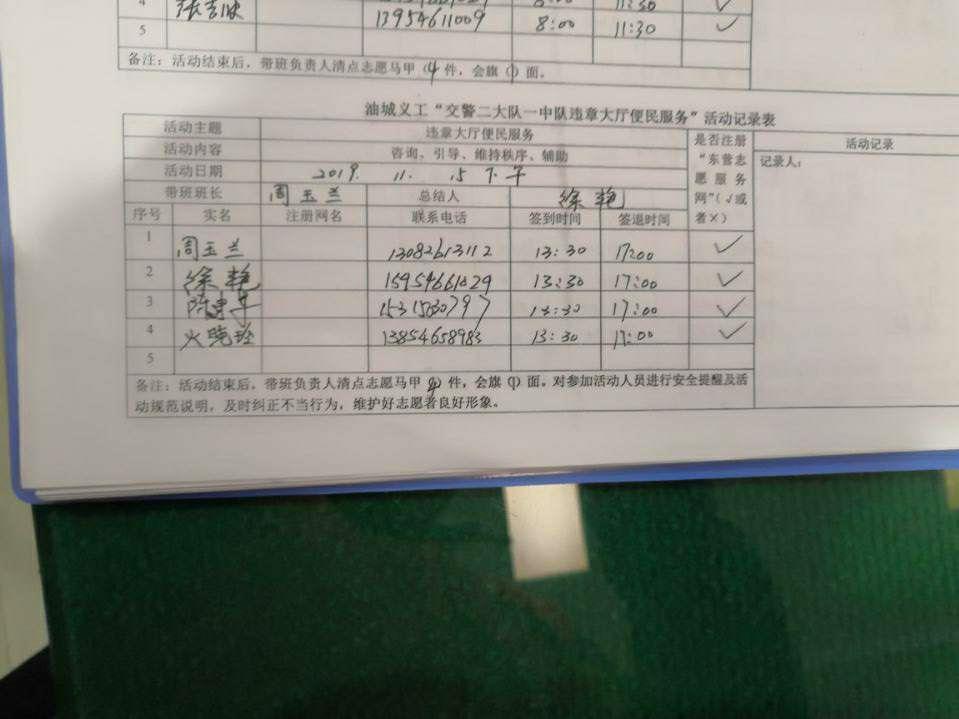 4 11:30 ✓
5 13954611009 8:00 11:30 ✓
备注：活动结束后，带班负责人清点志愿马甲（4件，会旗（1）面。
油城义工“交警二大队一中队违章大厅便民服务”活动记录表
活动主题 违章大厅便民服务 是否注册“东营志愿服务网”（√或者×） 活动记录
活动内容 咨询、引导、维持秩序、辅助 记录人：
活动日期 2019. 11. 15 下午
带班班长 周玉兰 总结人 徐艳
序号 实名 注册网名 联系电话 签到时间 签退时间
1 周玉兰 13082613112 13:30 17:00 ✓
2 徐艳 15954661029 13:30 17:00 ✓
3 13:30 17:00 ✓
4 火晓 13854658983 13:30 17:00 ✓
5
备注：活动结束后，带班负责人清点志愿马甲（4）件，会旗（1）面。对参加活动人员进行安全提醒及活
动规范说明，及时纠正不当行为，维护好志愿者良好形象。